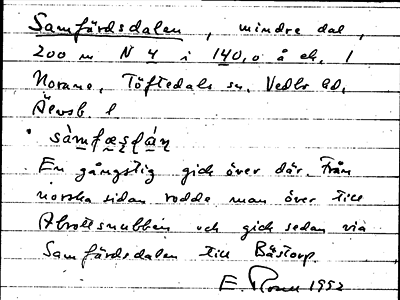 Samfärdsdalen, mindre dal,
200 m N 4 i 140,0 å ek. 1
Norane, Töftedals sn, Vedbo hd,
Älvsb. l
En gångstig gick över där. Från
norska sidan rodde man över till
och gick sedan via
Samfärdsdalen till Bästorp.
E. 1952